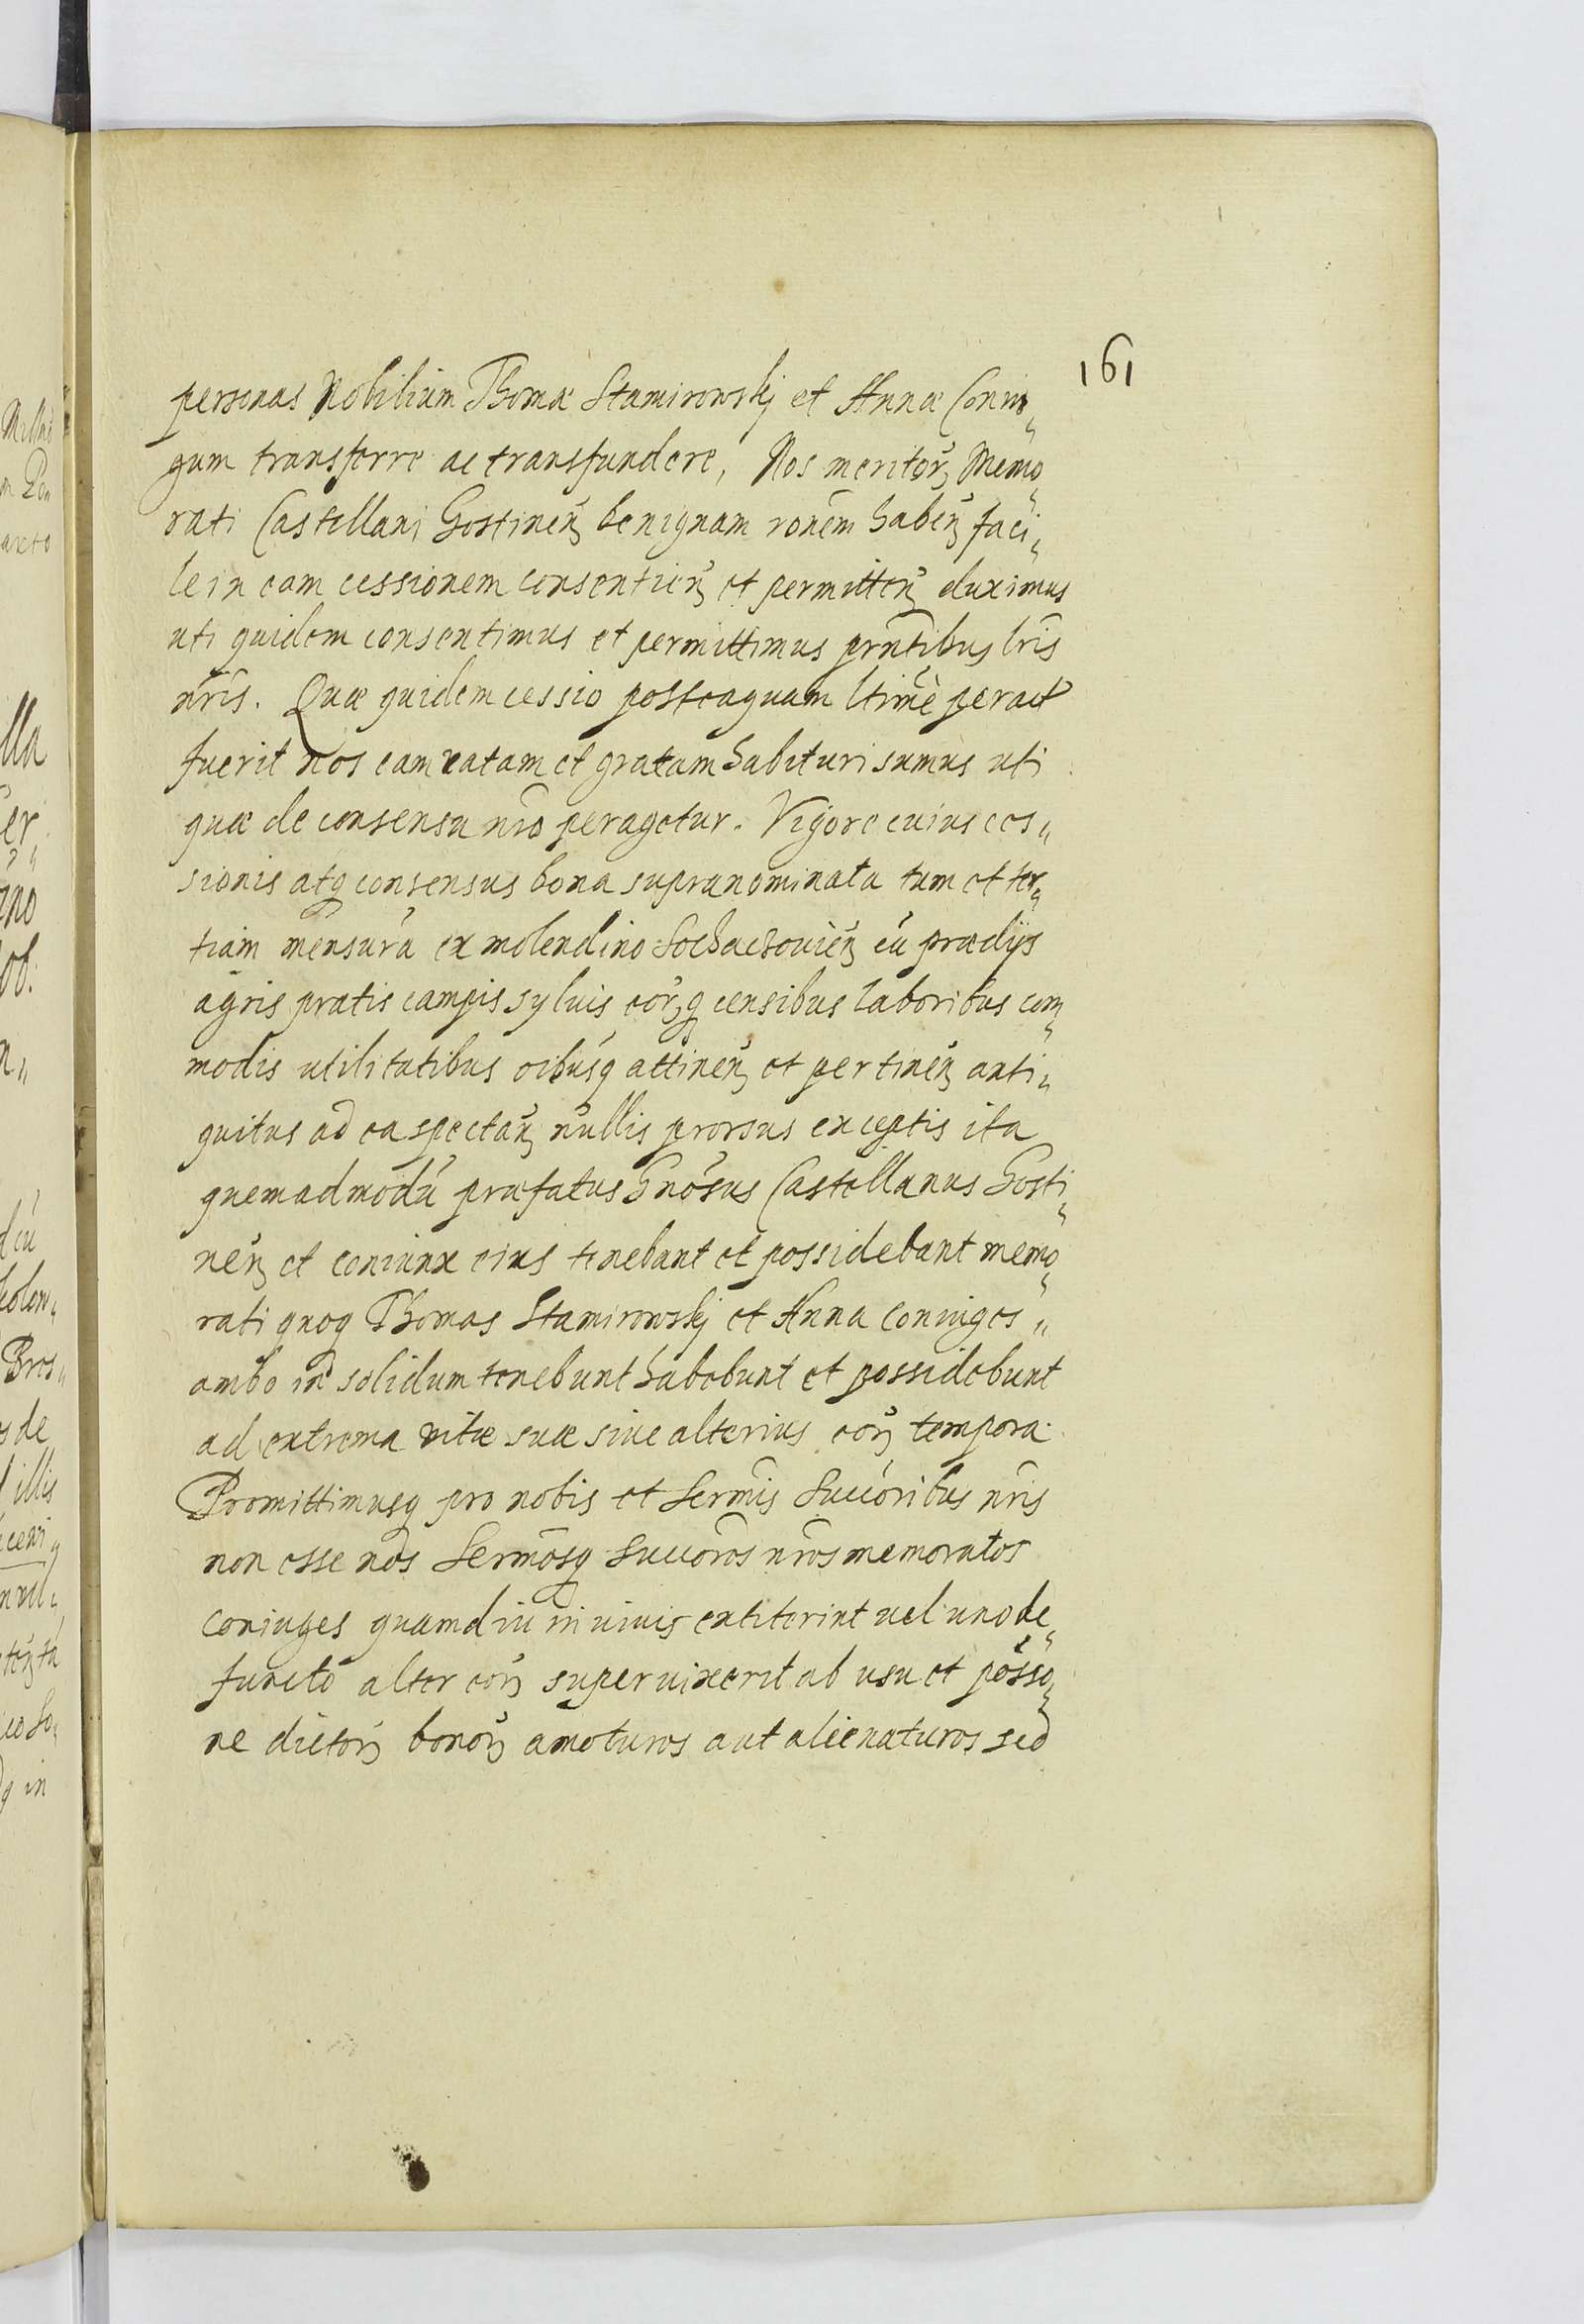 161
personas Nobilium Thomæ Stamirowskj et Annæ Coniu„
gum transferre ac transfundere, Nos meritorꝫ Memo„
rati Castellani Gostinenꝫ benignam ronem̄ habenꝫ faci„
le in eam cessionem consentienꝫ et permittenꝫ duximus
uti quidem consentimus et permittimus prn̄tibus lris̄
nris̄. Quæ quidem cessio posteaquam ltimè peract
fuerit nos eam ratam et gratam habituri sumus uti
quæ de consensu nro̅ peragetur. Vigore cuius ces„
sionis atq consensus bona supranominata tum et ter„
tiam mensurā ex molendino Sochaczouienꝫ cū prædijs
agris pratis campis syluis eorꝫq censibus laboribus com„
modis utilitatibus oibusq attinenꝫ et pertinenꝫ anti„
quitus ad ea spectanꝫ nullis prorsus exceptis ita
quemadmodū præfatus Gnosus Castellanus Gosti„
nenꝫ et coniunx eius tenebant et possidebant memo„
rati quoq Thomas Stamirowskj et Anna coniuges„
ambo in solidum tenebunt habebunt et possidebunt
ad extrema vitæ suæ siue alterius eorꝫ tempora.
Promittimusq pro nobis et Sermis̄ Succoribus nris̄
non esse nos Sermosq̄ Succores nros̄ memoratos
coniuges quamdiu in uiuis extiterint uel uno de„
functo alter eorꝫ superuixerit ab usu et posso„
ne dictorꝫ bonorꝫ amoturos aut alienaturos sed